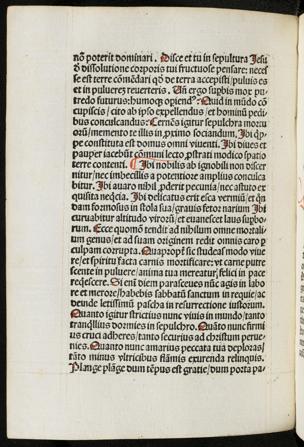 nō poterit dominari. Disce et tu in sepultura Jesu
d̄ dissolutione corporis tui fructuose pensare: neces
se est terre cōmēdari qd̄ de terra accepisti / puluis es
et in puluerez reuerteris. An̄ ergo supbis mox pu-
tredo futurus: humoq3 opiend9: Quid in mūdo cō
cupiscis / cito ab ipso expellendus / et hominū pedi-
bus conculcandus: Cernēs igitur sepulchra mortu
orū / memento te illis in p̱ximo sociandum. Ibi q̄p-
pe constituta est domus omni viuenti. Ibi diues et
pauper iacebūt cōmuni lecto p̱strati modico spatio
terre contenti. Ibi nobilis ab ignobili non discer
nitur / nec imbecillis a potentiore amplius conculca
bitur. Ibi auaro nihil p̱derit pecunia / nec astuto ex
quisita neqtia. Ibi delicatus erit esca vermiū / et qn̄
dam formosus in stola sua / grauis fetor narium Ibi
curuabitur altitudo viroꝝ / et euanescet laus supbo-
rum. Ecce quomō tendit ad nihilum omne mortali-
um genus / et ad suam originem redit omnis caro p̱
culpam corrupta. Quapropt̄ sic studeas modo viue
re / et spiritu facta carnis mortificare: vt carne putre
scente in puluere / anima tua mereatur / felici in pace
reqescere. Si en̄ diem parasceues nūc agis in labo
re et merore / habebis sabbatū sanctum in requie / ac
deinde letissimū pascha in resurrectione iustorum.
Quanto igitur strictius nunc viuis in mundo / tanto
tranqllius dormies in sepulchro. Quāto nunc firmi
us cruci adheres / tanto securius ad christum perue-
nies. Quanto nunc amarius peccata tua deploras /
tāto minus vltricibus flāmis exurenda relinquis.
Plange plāge dum tēpus est gratie / dum porta pa-